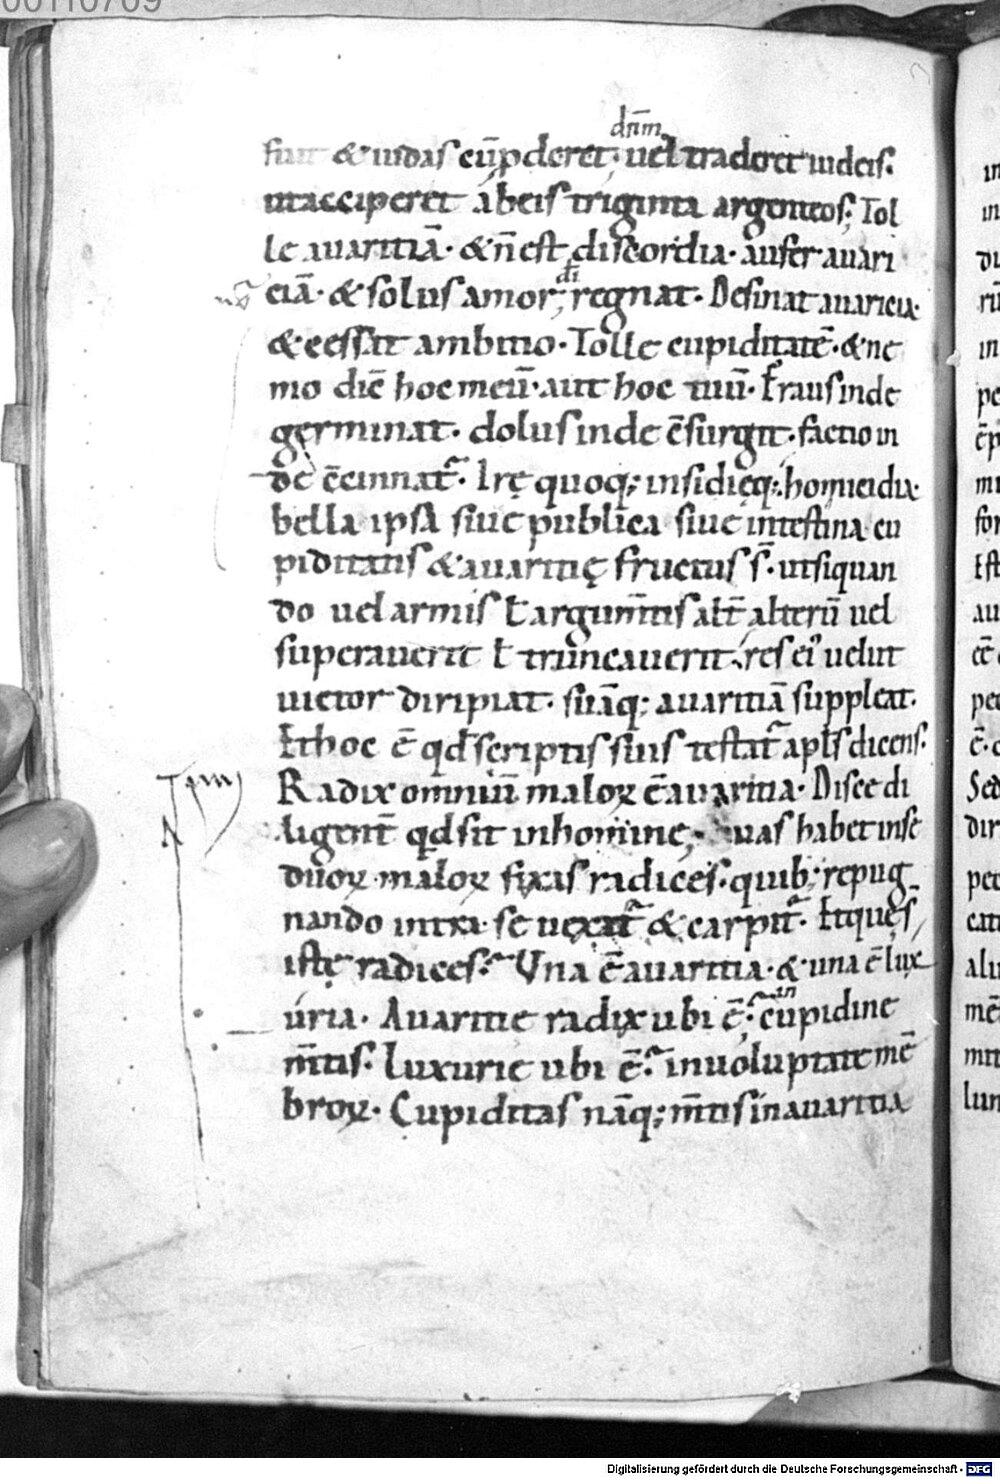 00110709
dñm
fuit & iudas cū pderet. uel traderet iudeis.
utacciperet abeis triginta argenteos; Tol
le auaritiā. & ñ est discordia. aufer auari
di
ciā. & solus amor regnat. Desinat auaricia
& cessat ambitio. Tolle cupiditatē. & ne
mo dic̄ hoc meū. aut hoc tuū. Fraus inde
germinat. dolus inde c̄surgit. factio in
de c̄cinnat᷑. Irę quoq; insidięq; homicidia
bella ipsa siue publica siue intestina cu
piditatis & auaritię fructus s̄. ut siquan
do uel armis ł argum̄tis alt̄ alterū uel
superauerit ł truncauerit. res ei᾽ uelut
uictor diripiat. suāq; auaritiā suppleat.
Et hoc ē qd scriptis suis testat᷑ apls dicens.
Radix omniū maloꝝ ē auaritia. Disce di
ligent̄ qd sit inhomine, habet inse
duoꝝ maloꝝ fixas radices. quib; repug
nando intra se uexat᷑ & carpit᷑. Et quęs
istę radices. Una ē auaritia. & una ē lux
in
uria. Auaritie radix ubi ē. cupidine
m̄tis. Luxurie ubi ē. in uoluptate mē
broꝝ. Cupiditas nāq; m̄tis in auaritia
Digitalisierung gefördert durch die Deutsche Forschungsgemeinschaft - DFG